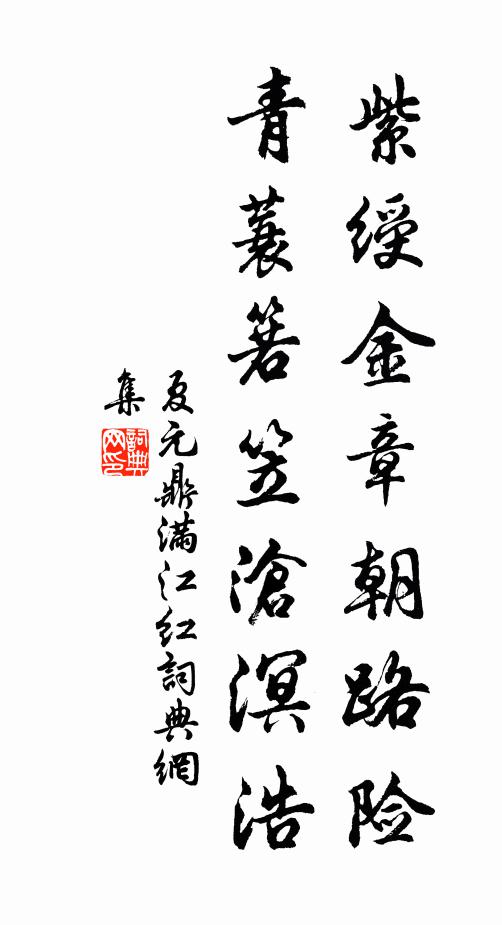 紫绶金章朝路险
青蓑箬笠滄溟浩
夏元鼎满江红詞典網
集
詞典
网印